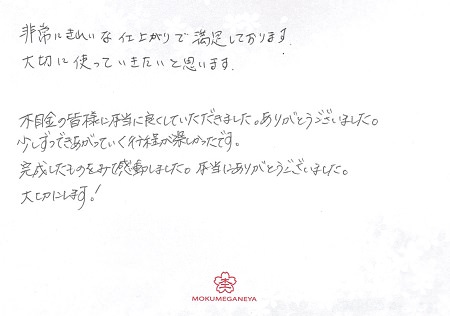 非常にきれいな仕上がりで満足しております。
大切に使っていきたいと思います。
木目金の皆様に本当に良くしていただきました。ありがとうございました。
少しずつできあがっていく行程が楽しかったです。
完成したものをみて感動しました。本当にありがとうございました。
大切にします!
MOKUMEGANEYA